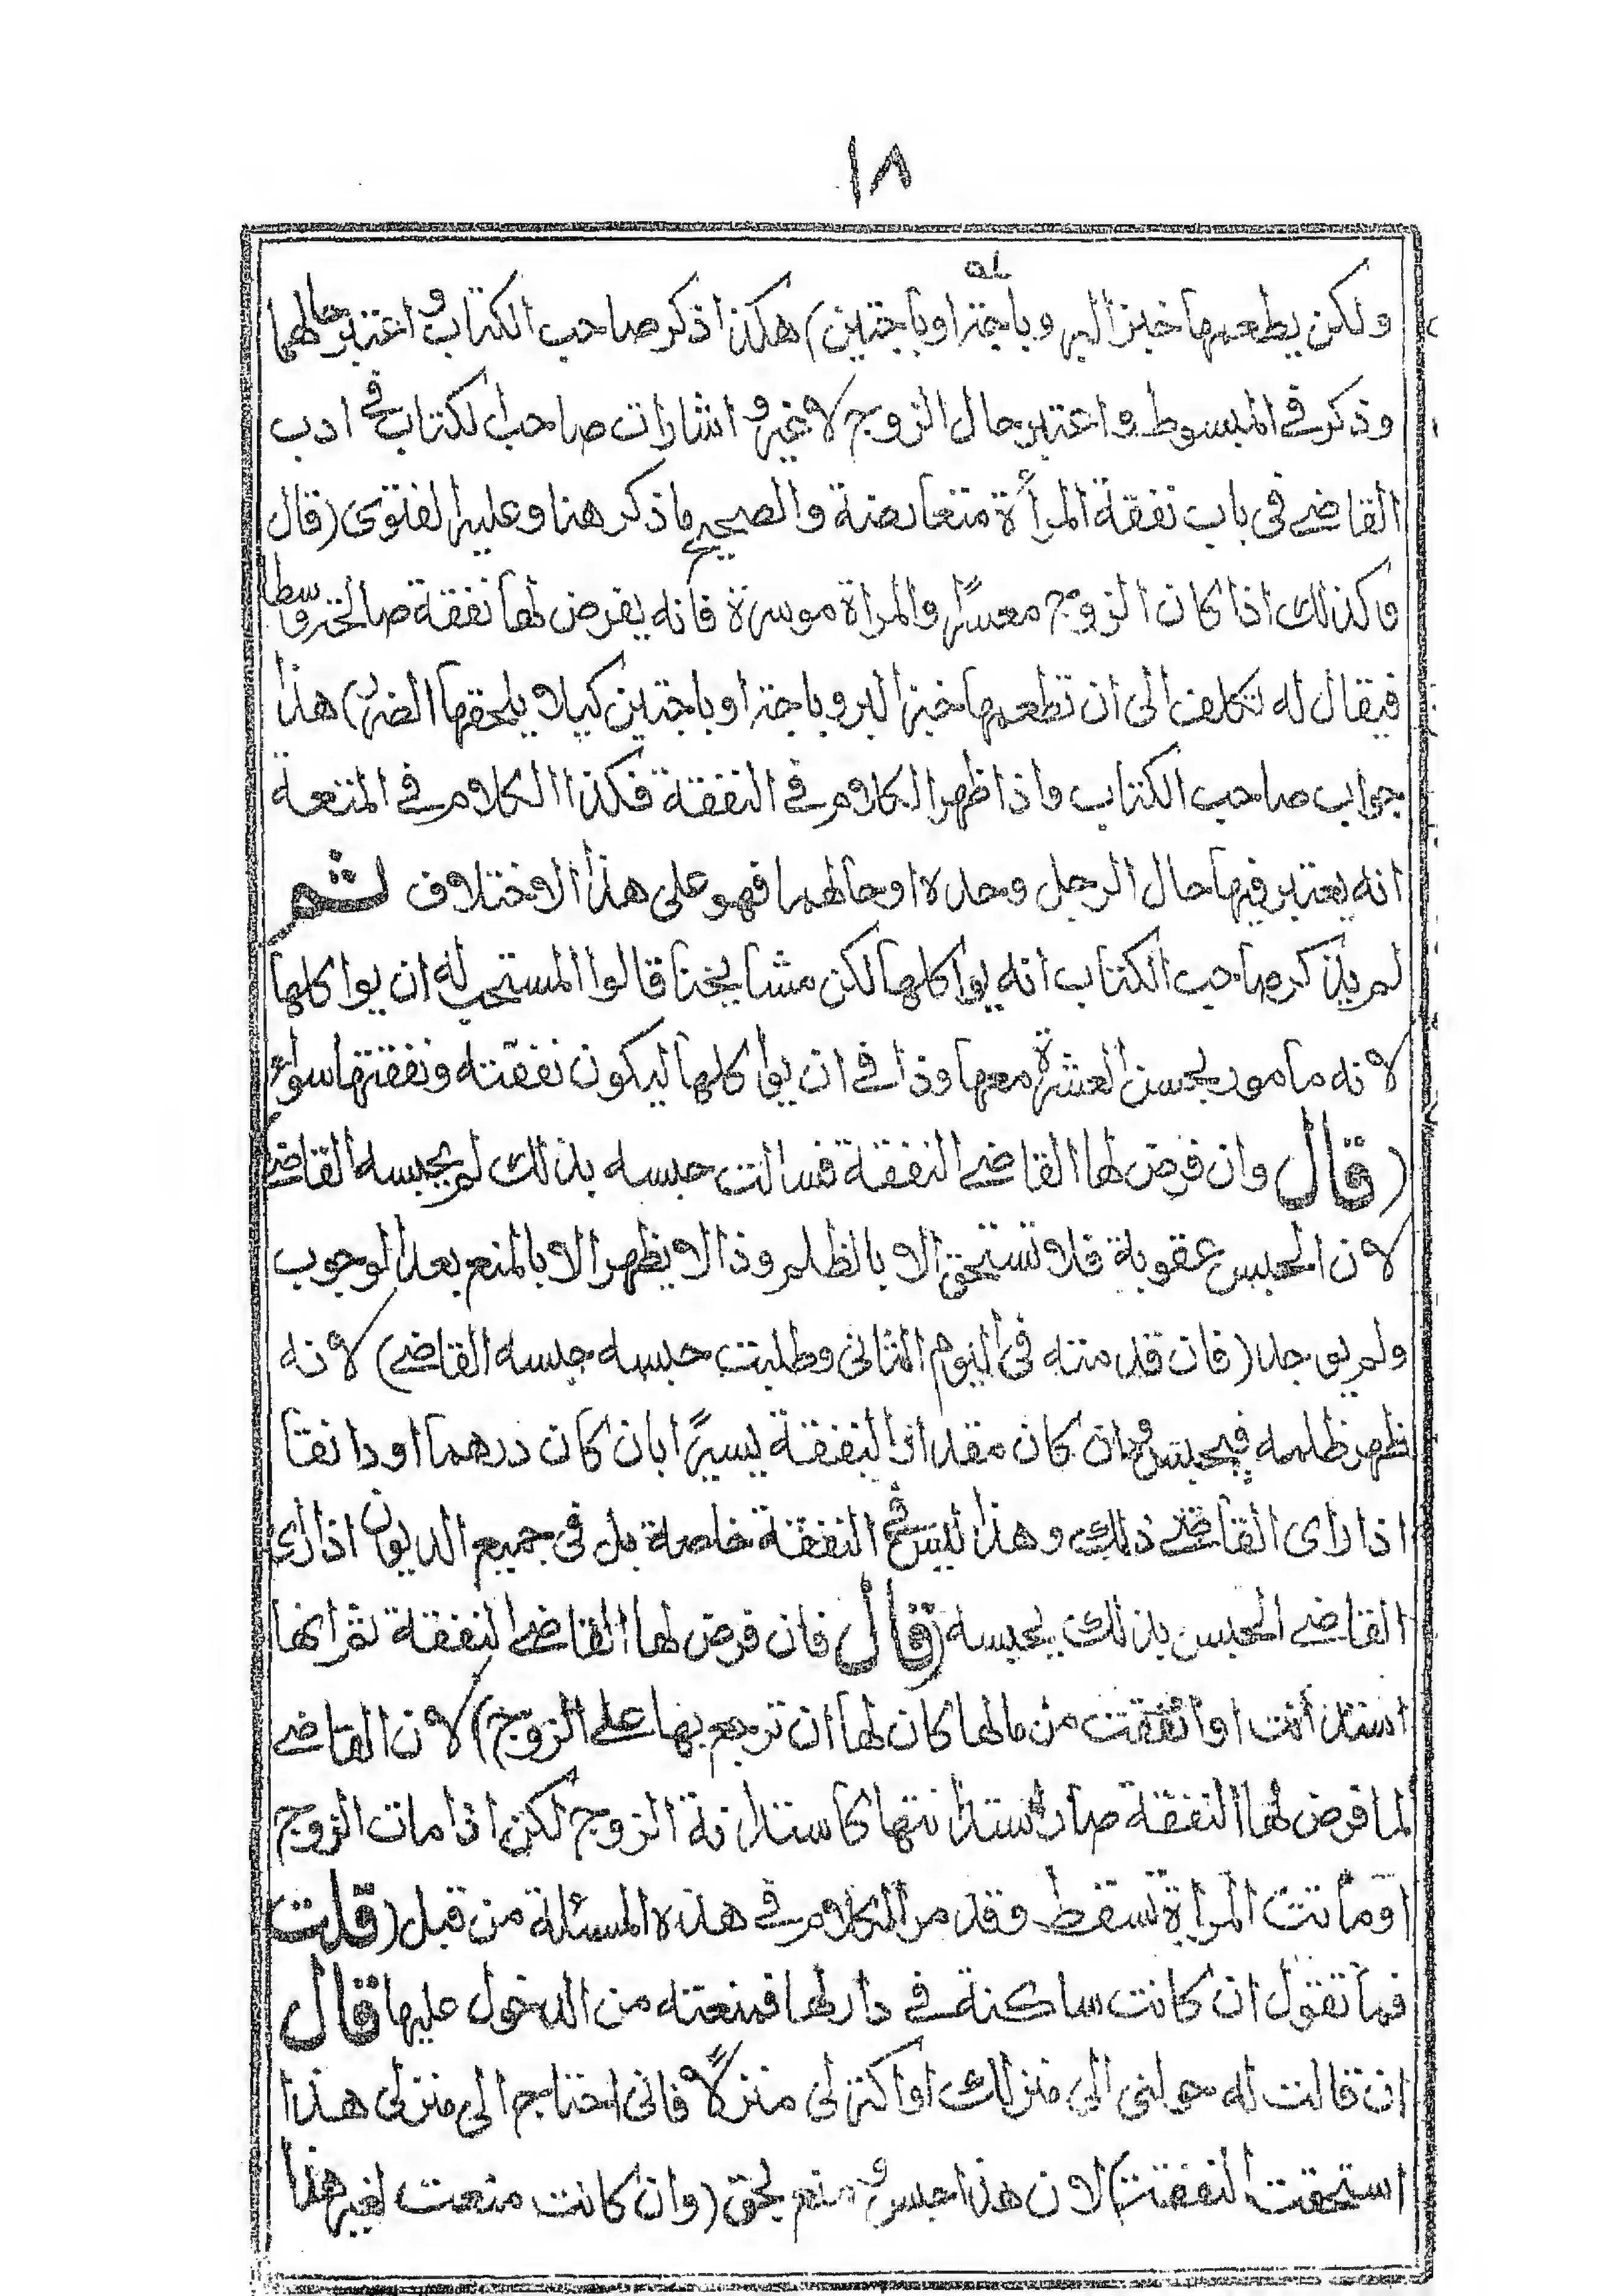 ١٨
ولكن يطعمها خبز البر وباجة اوباجتين) هكذا ذكر صاحب الكتاب و اعتبر حالهما
وذكر فى المبسوط واعتبر حال الزوج لا غير و اشارات صاحب الكتاب فى ادب
القاضى فى باب نفقة المرأة متعارضة والصحيح ما ذكر هنا وعليه الفتوى (قال
وكذلك اذا كان الزوج معسرا والمراة موسرة فانه يفرض لها نفقة صالحة وسطا
فيقال له تكلف الى ان تطعمها خبز البر وباجة او باجتين كيلا يلحقها الضرر) هذا
جواب صاحب الكتاب واذا ظهر الكلام فى النفقة فكذا الكلام فى المتعة
انه يعتبر فيها حال الرجل وحده او حالهما فهو على هذا الاختلاف ثم
لم يذكر صاحب الكتاب انه يواكلها لكن مشايخنا قالوا المستحب له ان يواكلها
لانه مامور بحسن العشرة معها وذا فى ان يواكلها ليكون نفقته ونفقتها سواء
(قال وان فرض لها القاضى النفقة فسالت حبسه بذلك لم يحبسه القاضى
لان الحبس عقوبة فلا تستحق الا بالظلم وذا لا يظهر الا بالمنع بعد الوجوب
ولم يوجد (فان قدمته فى اليوم الثانى وطلبت حبسه حبسه القاضى) لانه
ظهر ظلمه فيحبس وان كان مقدار النفقة يسيرًا بان كان درهما او دانقا
اذا راى القاضى ذلك وهذا ليس فى النفقة خاصة بل فى جميع الديون اذا راى
القاضى الحبس بذلك يحبسه (قال فان فرض لها القاضى النفقة ثم انها
استدانت او انفقت من مالها كان لها ان ترجع بها على الزوج) لان القاضى
لما فرض لها النفقة صار استدانتها كاستدانة الزوج لكن اذا مات الزوج
او ماتت المراة تسقط وقد مر الكلام فى هذه المسئلة من قبل (قلت
فما تقول ان كانت ساكنة فى دار لها فمنعته من الدخول عليها قال
ان قالت له حولنى الى منزلك او اكتر لى منزلًا فانى احتاج الى منزلى هذا
استحقت النفقة) لان هذا حبس و منع بحق (وان كانت منعت لغير هذا